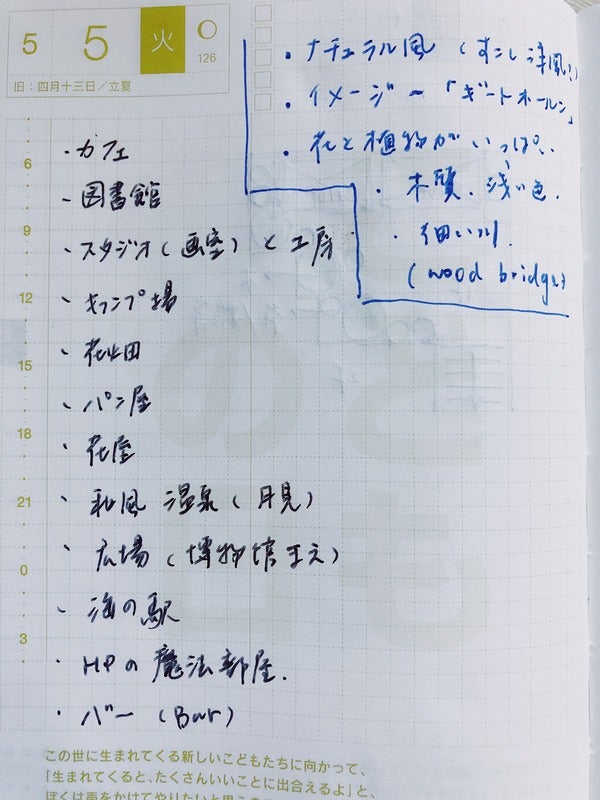 5 5 火
126
旧：四月十三日／立夏
・ナチュラル風（すこし洋風？）
・イメージ〜「ギートホールン」
・花と植物がいっぱい
・木質、浅い色.
・細い川.
（wood bridge）
6
・カフェ
・図書館
9
・スタジオ（画室）と工房
12
・キャンプ場
・花畑
15
・パン屋
18
・花屋
21
・和風 温泉（月見）
0
・広場（博物館まえ）
・海の駅
3
・HPの魔法部屋.
・バー（Bar）
この世に生まれてくる新しいこどもたちに向かって、
「生まれてくると、たくさんいいことに出合えるよ」と、
ぼくは声をかけてやりたいと思